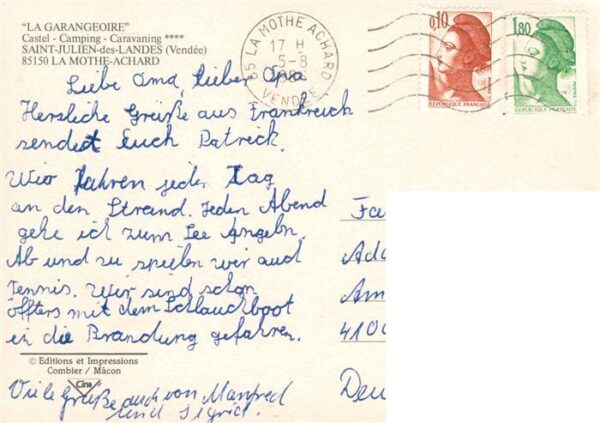 "LA GARANGEOIRE"
Castel - Camping - Caravaning ****
SAINT-JULIEN-des-LANDES (Vendée)
85150 LA MOTHE-ACHARD
85 LA MOTHE ACHARD
17 H
5-8
VENDEE
0,10
REPUBLIQUE FRANÇAISE
1,80
REPUBLIQUE FRANÇAISE
Liebe Oma, lieber Opa
Hersliche Grüße aus Frankreich
sendet Euch Patrick.
Wir fahren jeden Tag
an den Strand. Jeden Abend
gehe ich zum See Angeln.
Ab und zu spielen wir auch
Tennis. Wir sind schon
öffters mit dem Schlauchboot
in die Brandung gefahren.
Viele Grüße auch von Manfred
und Sigrid.
© Editions et Impressions
Combier / Mâcon
Cim